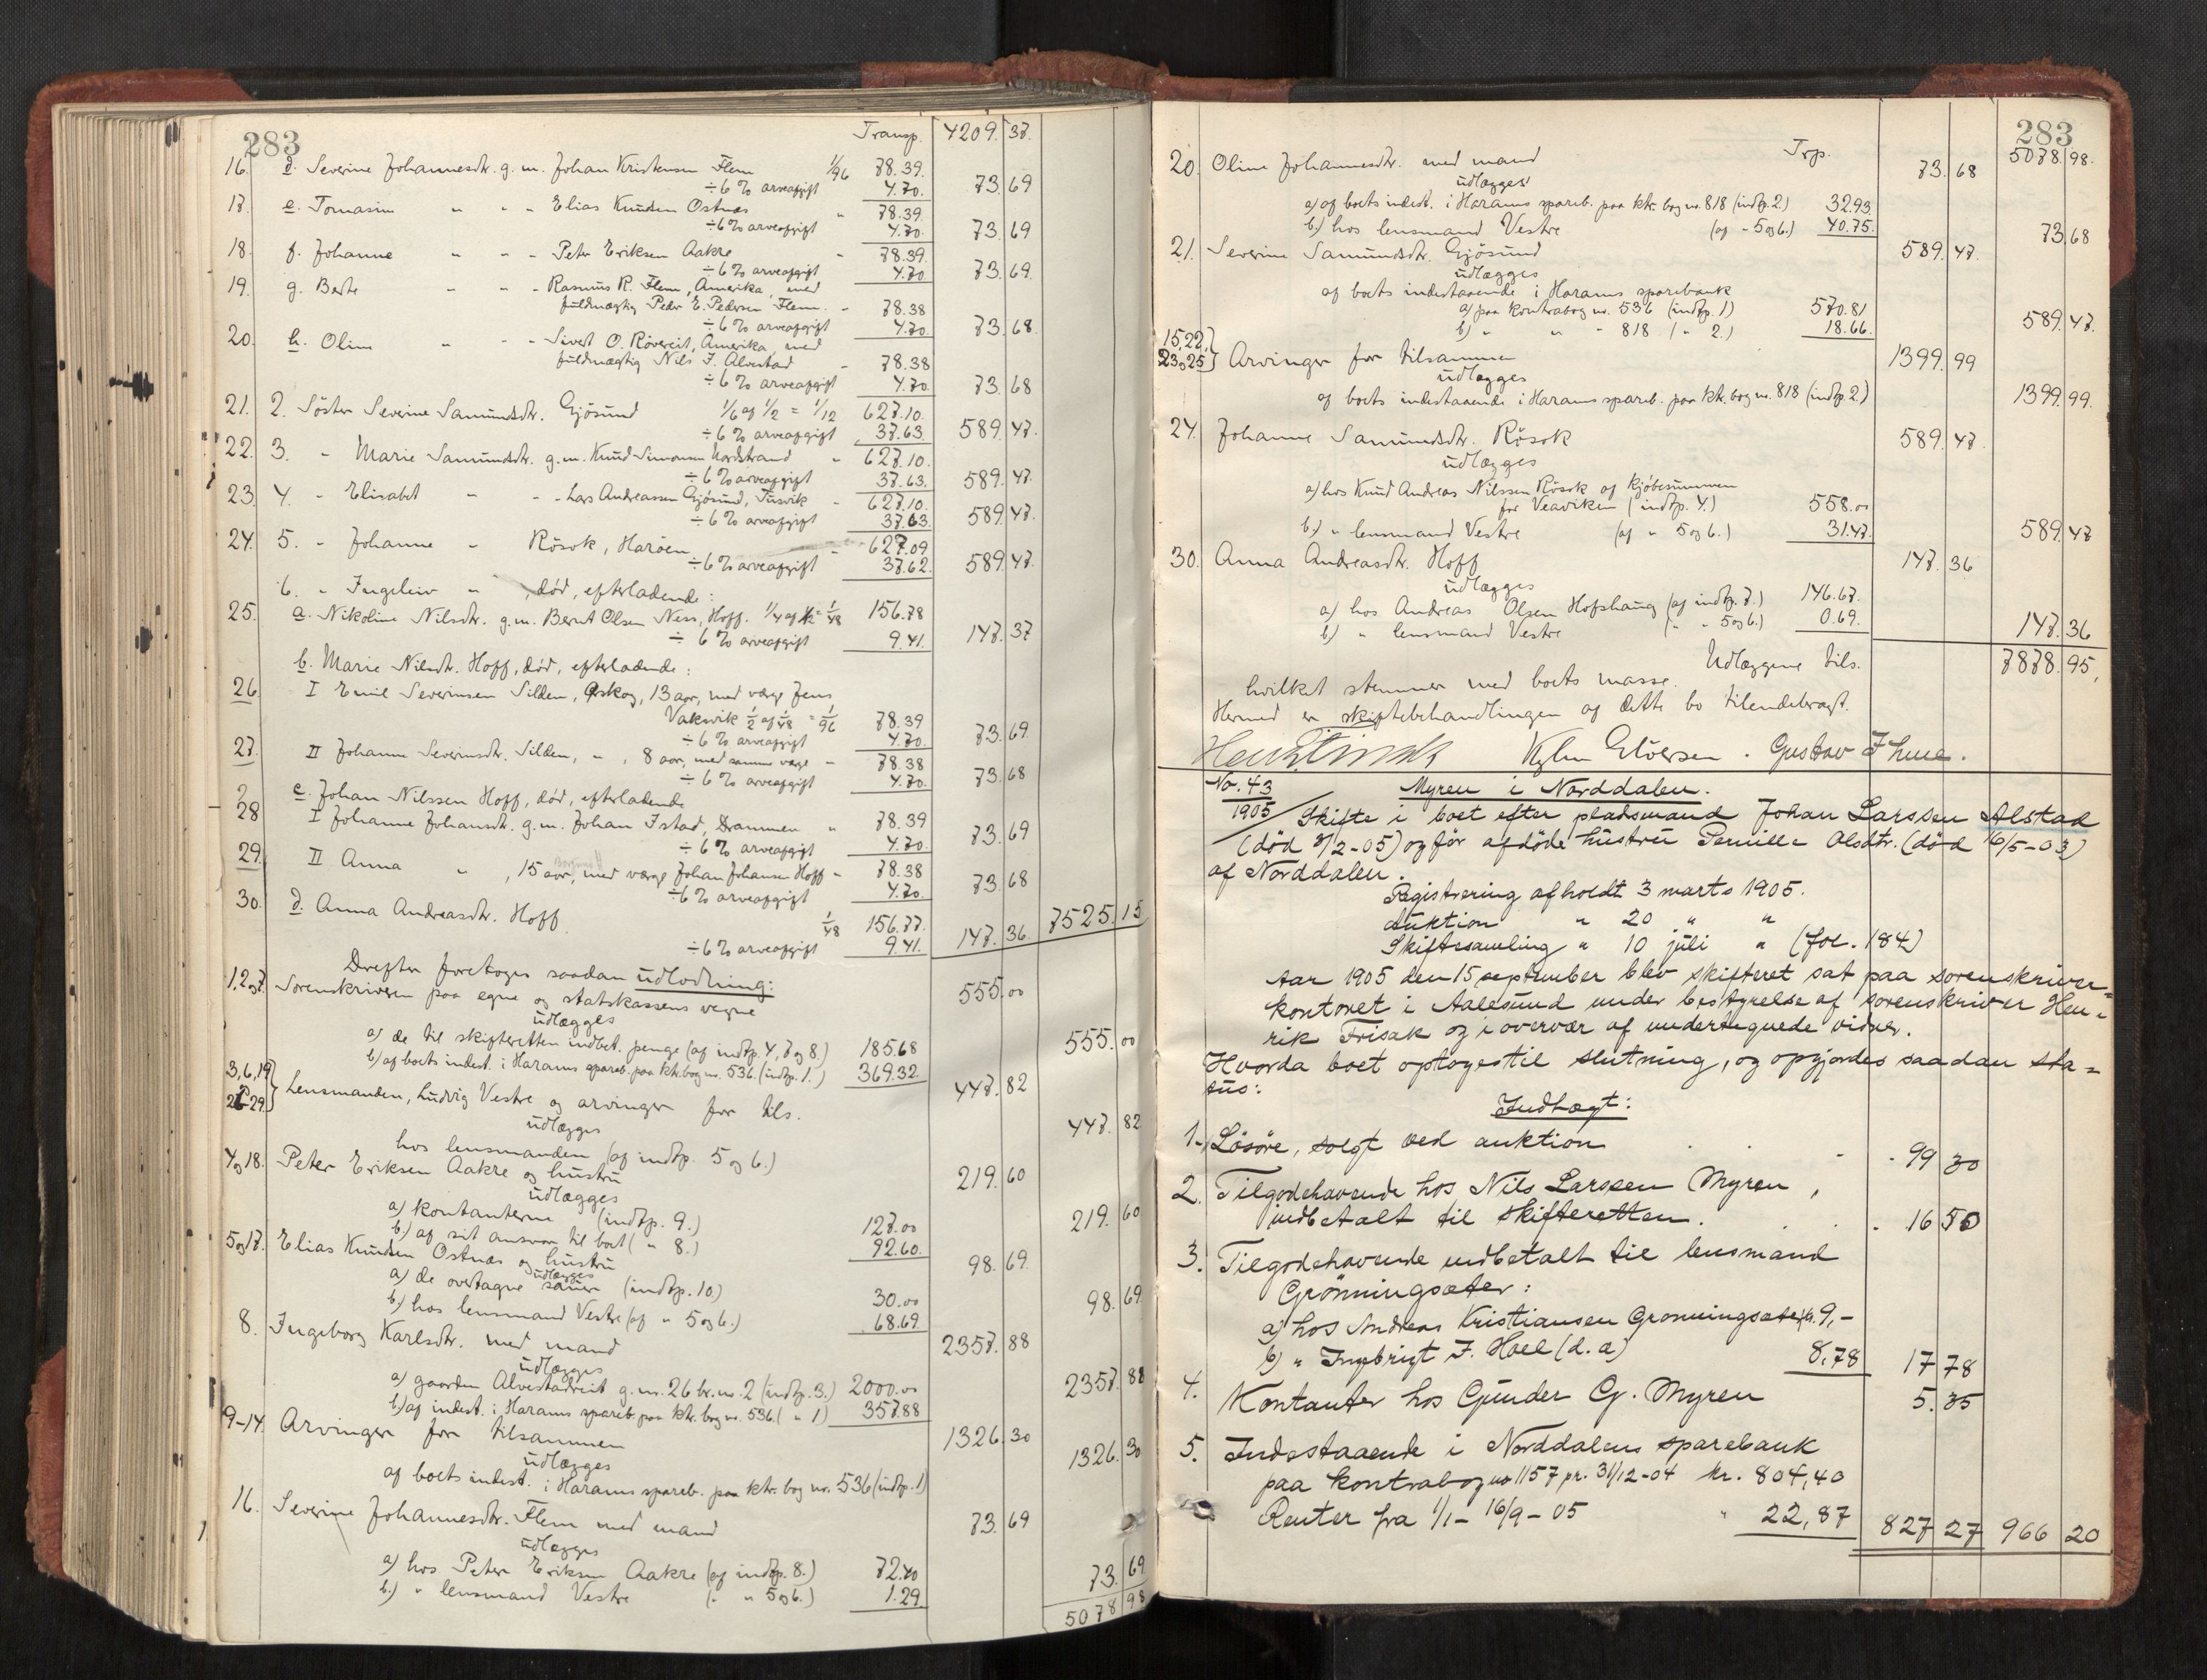 283
Transp. 4209. 37.
16. d. Severine Johannesdtr. g. m. Johan Kristensen Flem 1/96 78.39.
÷ 6 % arveafgift 4.70. 73. 69
17. e. Tomasine " " - Elias Knudsen Ostnæs " 78.39.
÷ 6 % arveafgift 4.70. 73. 69
18. f. Johanne " " - Peter Eriksen Aakre - 78.39.
÷ 6 % arveafgift 4.70 73. 69.
19. g. Berte " " - Rasmus R. Flem, Amerika, med
fuldmægtig Peder E. Pedersen Flem. - 78.38
÷ 6 % arveafgift 4.70. 73. 68.
20. h. Oline " " - Sivert O. Rövereit, Amerika, med
fuldmægtig Nils J. Alvestad - 78.38
÷ 6 % arveafgift 4.70. 73. 68
21. 2. Söster Severine Samundsdtr. Gjösund 1/6 af 1/2 = 1/12 627.10.
÷ 6 % arveafgift 37.63. 589. 47.
22. 3. " Marie Samundsdtr. g. m. Knud Simonsen Nordstrand " 627.10.
÷ 6 % arveafgift 37.63. 589. 47.
23. 4. " Elisabet " " - Lars Andreassen Gjösund, Tusvik - 627.10.
÷ 6 % arveafgift 37.63. 589. 47.
24. 5. " Johanne " Rösok, Haröen " 627.09
÷ 6 % arveafgift 37.62. 589. 47.
6. " Ingeleiv " , död, efterladende:
25. a. Nikoline Nilsdtr. g. m. Bernt Olsen Ness, Hoff. 1/4 af 1/12 = 1/48 156.78
÷ 6 % arveafgift 9.41. 147. 37
b. Marie Nilsdtr. Hoff, död, efterladende:
26. I Emil Severinsen Silden, Örskog, 13 aar, med værge Jens
Vaksvik 1/2 af 1/48 = 1/96 78.39
÷ 6 % arveafgift 4.70. 73. 69.
27. II Johanne Severinsdtr. Silden, " , 8 aar, med samme værge - 78.38
÷ 6 % arveafgift 4.70. 73. 68
c. Johan Nilssen Hoff, död, efterladende
28 I Johanne Johansdtr. g. m. Johan Istad, Drammen " 78.39
÷ 6 % arveafgift 4.70. 73. 69
29. II Anna " , 15 aar, med værge Johan Johansen Hoff - 78.38
÷ 6 % arveafgift 4.70 73. 68
30. d. Anna Andreasdtr. Hoff 1/48 156.77.
÷ 6 % arveafgift 9.41. 147. 36 7525. 15
Derefter foretoges saadan udlodning:
1, 2 og 7. Sorenskriveren paa egne og statskassens vegne 555. 00
udlægges
a) de til skifteretten indbet. penge (af indtp. 4, 7 og 8.) 185.68
b) af boets indest. i Harams spareb. paa ktr. bog no. 536. (indtp. 1.) 369.32. 555. 00
3, 6, 19
26-29. } Lensmanden, Ludvig Vestre og arvinger for tils. 447. 82
udlægges
hos lensmanden (af indtp. 5 og 6.) 447. 82
4 og 18. Peter Eriksen Aakre og hustru 219. 60
udlægges
a) kontanterne (indtp. 9.) 127.00
b) af sit ansvar til boet ( " 8.) 92.60. 219. 60
5 og 17. Elias Knudsen Ostnæs og hustru 98. 69
udlægges
a) de overtagne sauer (indtp. 10.) 30.00
b) hos lensmand Vestre (af " 5 og 6.) 68.69. 98. 69
8. Ingeborg Karlsdtr. med mand 2357. 88
udlægges
a) gaarden Alvestadreit g. no. 26 br. no. 2 (indtp. 3.) 2000.00
b) af indest. i Harams spareb. paa ktr. bog no. 536. ( " 1) 357.88 2357. 88
9-14. Arvinger for tilsammen 1326. 30
udlægges
af boets indest. i Harams spareb. paa ktr. bog no. 536 (indtp. 1) 1326. 30
16. Severine Johannesdtr. Flem med mand 73. 69
udlægges
a) hos Peter Eriksen Aakre (af indtp. 8.) 72.40
b.) " lensmand Vestre (. " 5 og 6.) 1.29. 73. 69
5078 98
283
Trp. 5078. 98.
20. Oline Johannesdtr. med mand 73. 68
udlægges
a) af boets indest. i Harams spareb. paa ktr. bog no. 818 (indtp. 2) 32.93.
b.) hos lensmand Vestre (af - 5 og 6.) 40.75. 73. 68
21. Severine Samundsdtr. Gjösund 589. 47.
udlægges
af boets indestaaende i Harams sparebank
a) paa kontrabog no. 536 (indtp. 1) 570.81
b) " " " 818 ( " 2.) 18.66. 589. 47.
15, 22,
23 og 25 } Arvinger for tilsammen 1399. 99
udlægges
af boets indestaaende i Harams spareb. paa ktr. bog no. 818 (indtp. 2.) 1399. 99.
24. Johanne Samundsdtr. Rösok 589. 47
udlægges
a) hos Knud Andreas Nilssen Rösok af kjöbesummen
for Veaviken (indtp. 4.) 558.00
b.) " lensmand Vestre (af " 5 og 6.) 31.47. 589. 47
30. Anna Andreasdtr. Hoff 147. 36
udlægges
a) hos Andreas Olsen Hofshaug (af indtp. 7.) 146.67.
b) " lensmand Vestre ( " - 5 og 6.) 0.69. 147. 36
Udlæggene tils. 7878. 95.
hvilket stemmer med boets masse.
Hermed er skiftebehandlingen af dette bo tilendebragt.
Gustav
No. 43
1905
Myren i Norddalen.
Skifte i boet efter pladsmand Johan Larssen Alstad
(död 3/2-05) og för afdöde hustru Pernille Olsdtr. (död 16/5-03)
af Norddalen.
Registrering afholdt 3 marts 1905.
Auktion " 20 " "
Skiftesamling " 10 juli " (fol. 184)
Aar 1905 den 15 september blev skifteret sat paa sorenskriver=
kontoret i Aalesund under bestyrelse af sorenskriver Hen=
rik Frisak og i overvær af undertegnede vidner.
Hvorda boet optoges til slutning, og opgjordes saadan sta=
tus:
Indtægt:
1. Lösöre, solgt ved auktion . . - - 99 30
2. Tilgodehavende hos Nils Larssen Myren,
indbetalt til skifteretten. . . - 16 50
3. Tilgodehavende indbetalt til lensmand
Grönningsæter:
a) hos Andreas Kristiansen Grönningsæter kr. 9,-
b) " Ingebrigt J. Hoel (d. a) 8,78 17 78
4. Kontanter hos Gunder G. Myren 5. 35
5. Indestaaende i Norddalens sparebank
paa kontrabog no 1157 pr. 31/12-04 kr. 804,40
Renter fra 1/1 - 16/9 - 05 " 22,87 827 27 966 20